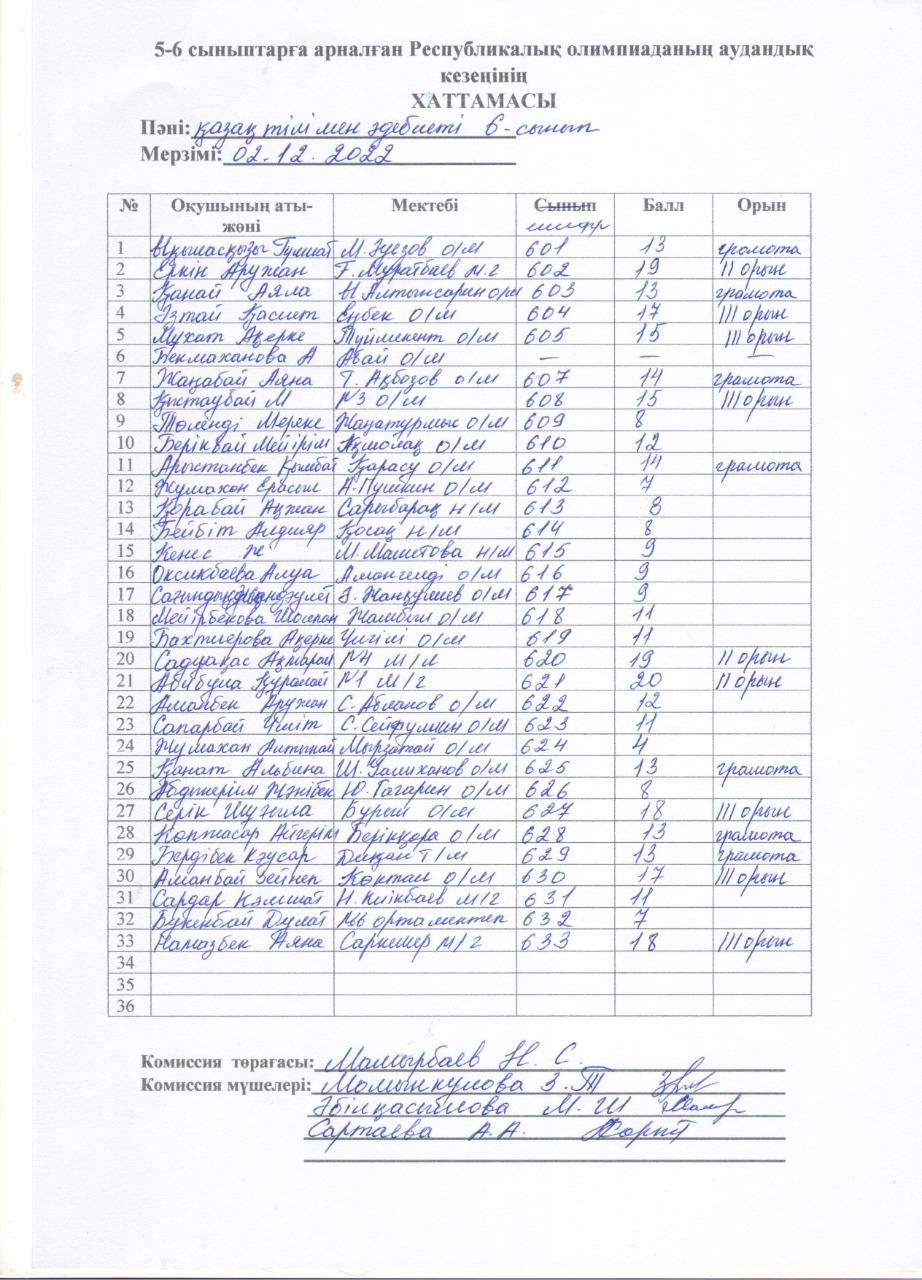 5-6 сыныптарға арналған Республикалық олимпиаданың аудандық
кезеңінің
ХАТТАМАСЫ
Пәні: қазақ тілі мен әдебиеті 6-сынып
Мерзімі: 02.12.2022
№ Оқушының аты-жөні Мектебі Сынып шифр Балл Орын
1 Ықыласқызы Гүлшат М. Әуезов о/м 601 13 грамота
2 Еркін Аружан Ғ. Мұратбаев м.г 602 19 II орын
3 Қанай Аяла Ы Алтынсарин о/м 603 13 грамота
4 Ізтай Қасиет Еңбек о/м 604 17 III орын
5 Мухат Ақерке Түймекент о/м 605 15 III орын
6 Бекмаханова А Абай о/м — — —
7 Жаңабай Аяна Т. Ақбозов о/м 607 14 грамота
8 Қыстаубай М №3 о/м 608 15 III орын
9 Төленді Мереке Жаңатұрмыс о/м 609 8
10 Берікбай Мейірім Ақмолақ о/м 610 12
11 Арыстанбек Қымбат Қарасу о/м 611 14 грамота
12 Жумахан Ерасыл А.Пушкин о/м 612 7
13 Қорабай Ақжан Сарыбарақ н/м 613 8
14 Бейбіт Алдияр Қосақ н/м 614 8
15 Кенес Ж М. Маметова н/м 615 9
16 Оксикбаева Алуа Амангелді о/м 616 9
17 о/м 617 9
18 Мейірбекова Шолпан Жамбыл о/м 618 11
19 Бахтиерова Ақерке Үлгілі о/м 619 11
20 Садуақас Ақмарал №4 м/л 620 19 II орын
21 Абибула Құралай №1 м/г 621 20 II орын
22 Аманбек Аружан С. Абланов о/м 622 12
23 Сапарбай Үміт С. Сейфуллин о/м 623 11
24 Жумахан Алтынай Мырзатай о/м 624 4
25 Қанат Альбина Ш. Уалиханов о/м 625 13 грамота
26 Жәнібек Ю. Гагарин о/м 626 8
27 Серік Шуғыла Бурыл о/м 627 18 III орын
28 Көптасар Айгерім Беріққора о/м 628 13 грамота
29 Бердібек Кәусар Дихан т/м 629 13 грамота
30 Аманбай Зейнеп Көктал о/м 630 17 III орын
31 Сардар Кәмшат Н. Киікбаев м/г 631 11
32 Букенбай Дулат №6 орта мектеп 632 7
33 Намазбек Аяна Саркемер м/г 633 18 III орын
34
35
36
Комиссия төрағасы: Мамырбаев Н. С.
Комиссия мүшелері: Момынкулова З.Т
Әбілқасымова М. Ш
Сартаева А.А.